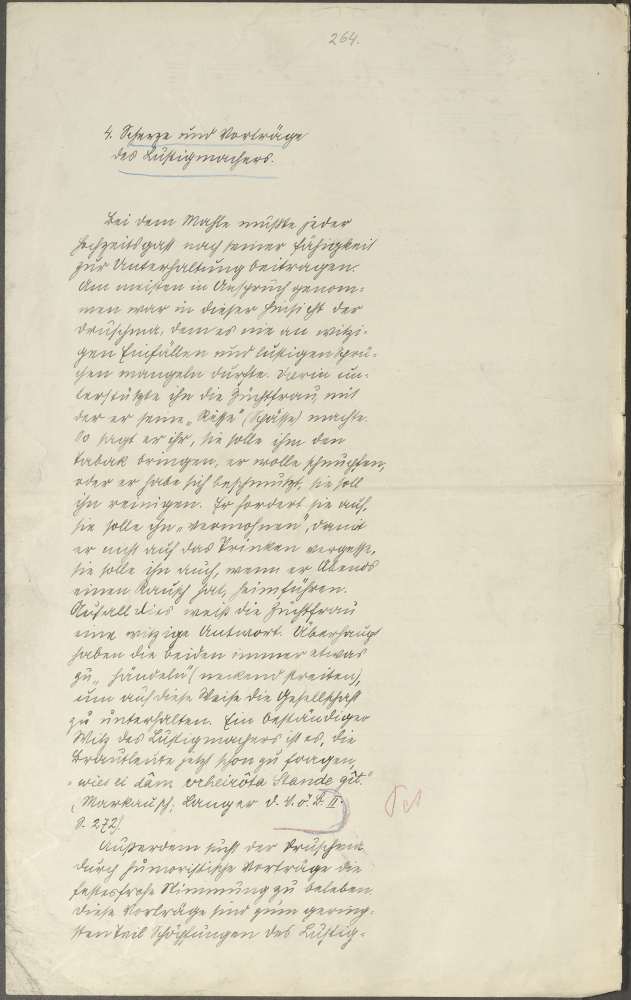 264.
4. Scherze und Vorträge
des Lustigmachers.
Bei dem Mahle mußte jeder
Hochzeitsgast nach seiner Fähigkeit
zur Unterhaltung beitragen.
Am meisten in Anspruch genom-
men war in dieser Hinsicht der
Druschma, dem es nie an witzi-
gen Einfällen und lustigen Sprü-
chen mangeln durfte. Darin un-
terstützte ihn die Züchtfrau, mit
der er seine „Risse" (Spässe) machte.
So sagt er ihr, sie solle ihm den
Tabak bringen, er wolle schnupfen,
oder er habe sich beschmutzt, sie soll
ihn reinigen. Er fordert sie auf,
sie solle ihn „vermohnen", damit
er nicht auf das Trinken vergesse,
sie solle ihn auch, wenn er Abends
einen Rausch hat, heimführen.
Auf all dies weiß die Züchtfrau
eine witzige Antwort. Überhaupt
haben die beiden immer etwas
zu „händeln" (neckend streiten),
um auf diese Weise die Gesellschaft
zu unterhalten. Ein beständiger
Witz des Lustigmachers ist es, die
Brautleute jetzt schon zu fragen,
„wies ei dâm verheirôta Stande gît."
(Markausch, Langer d. V. ö. B. II.
S. 272)
Außerdem sucht der Druschma
durch humoristische Vorträge die
festesfrohe Stimmung zu beleben.
Diese Vorträge sind zum gering-
sten Teil Schöpfungen des Lustig-